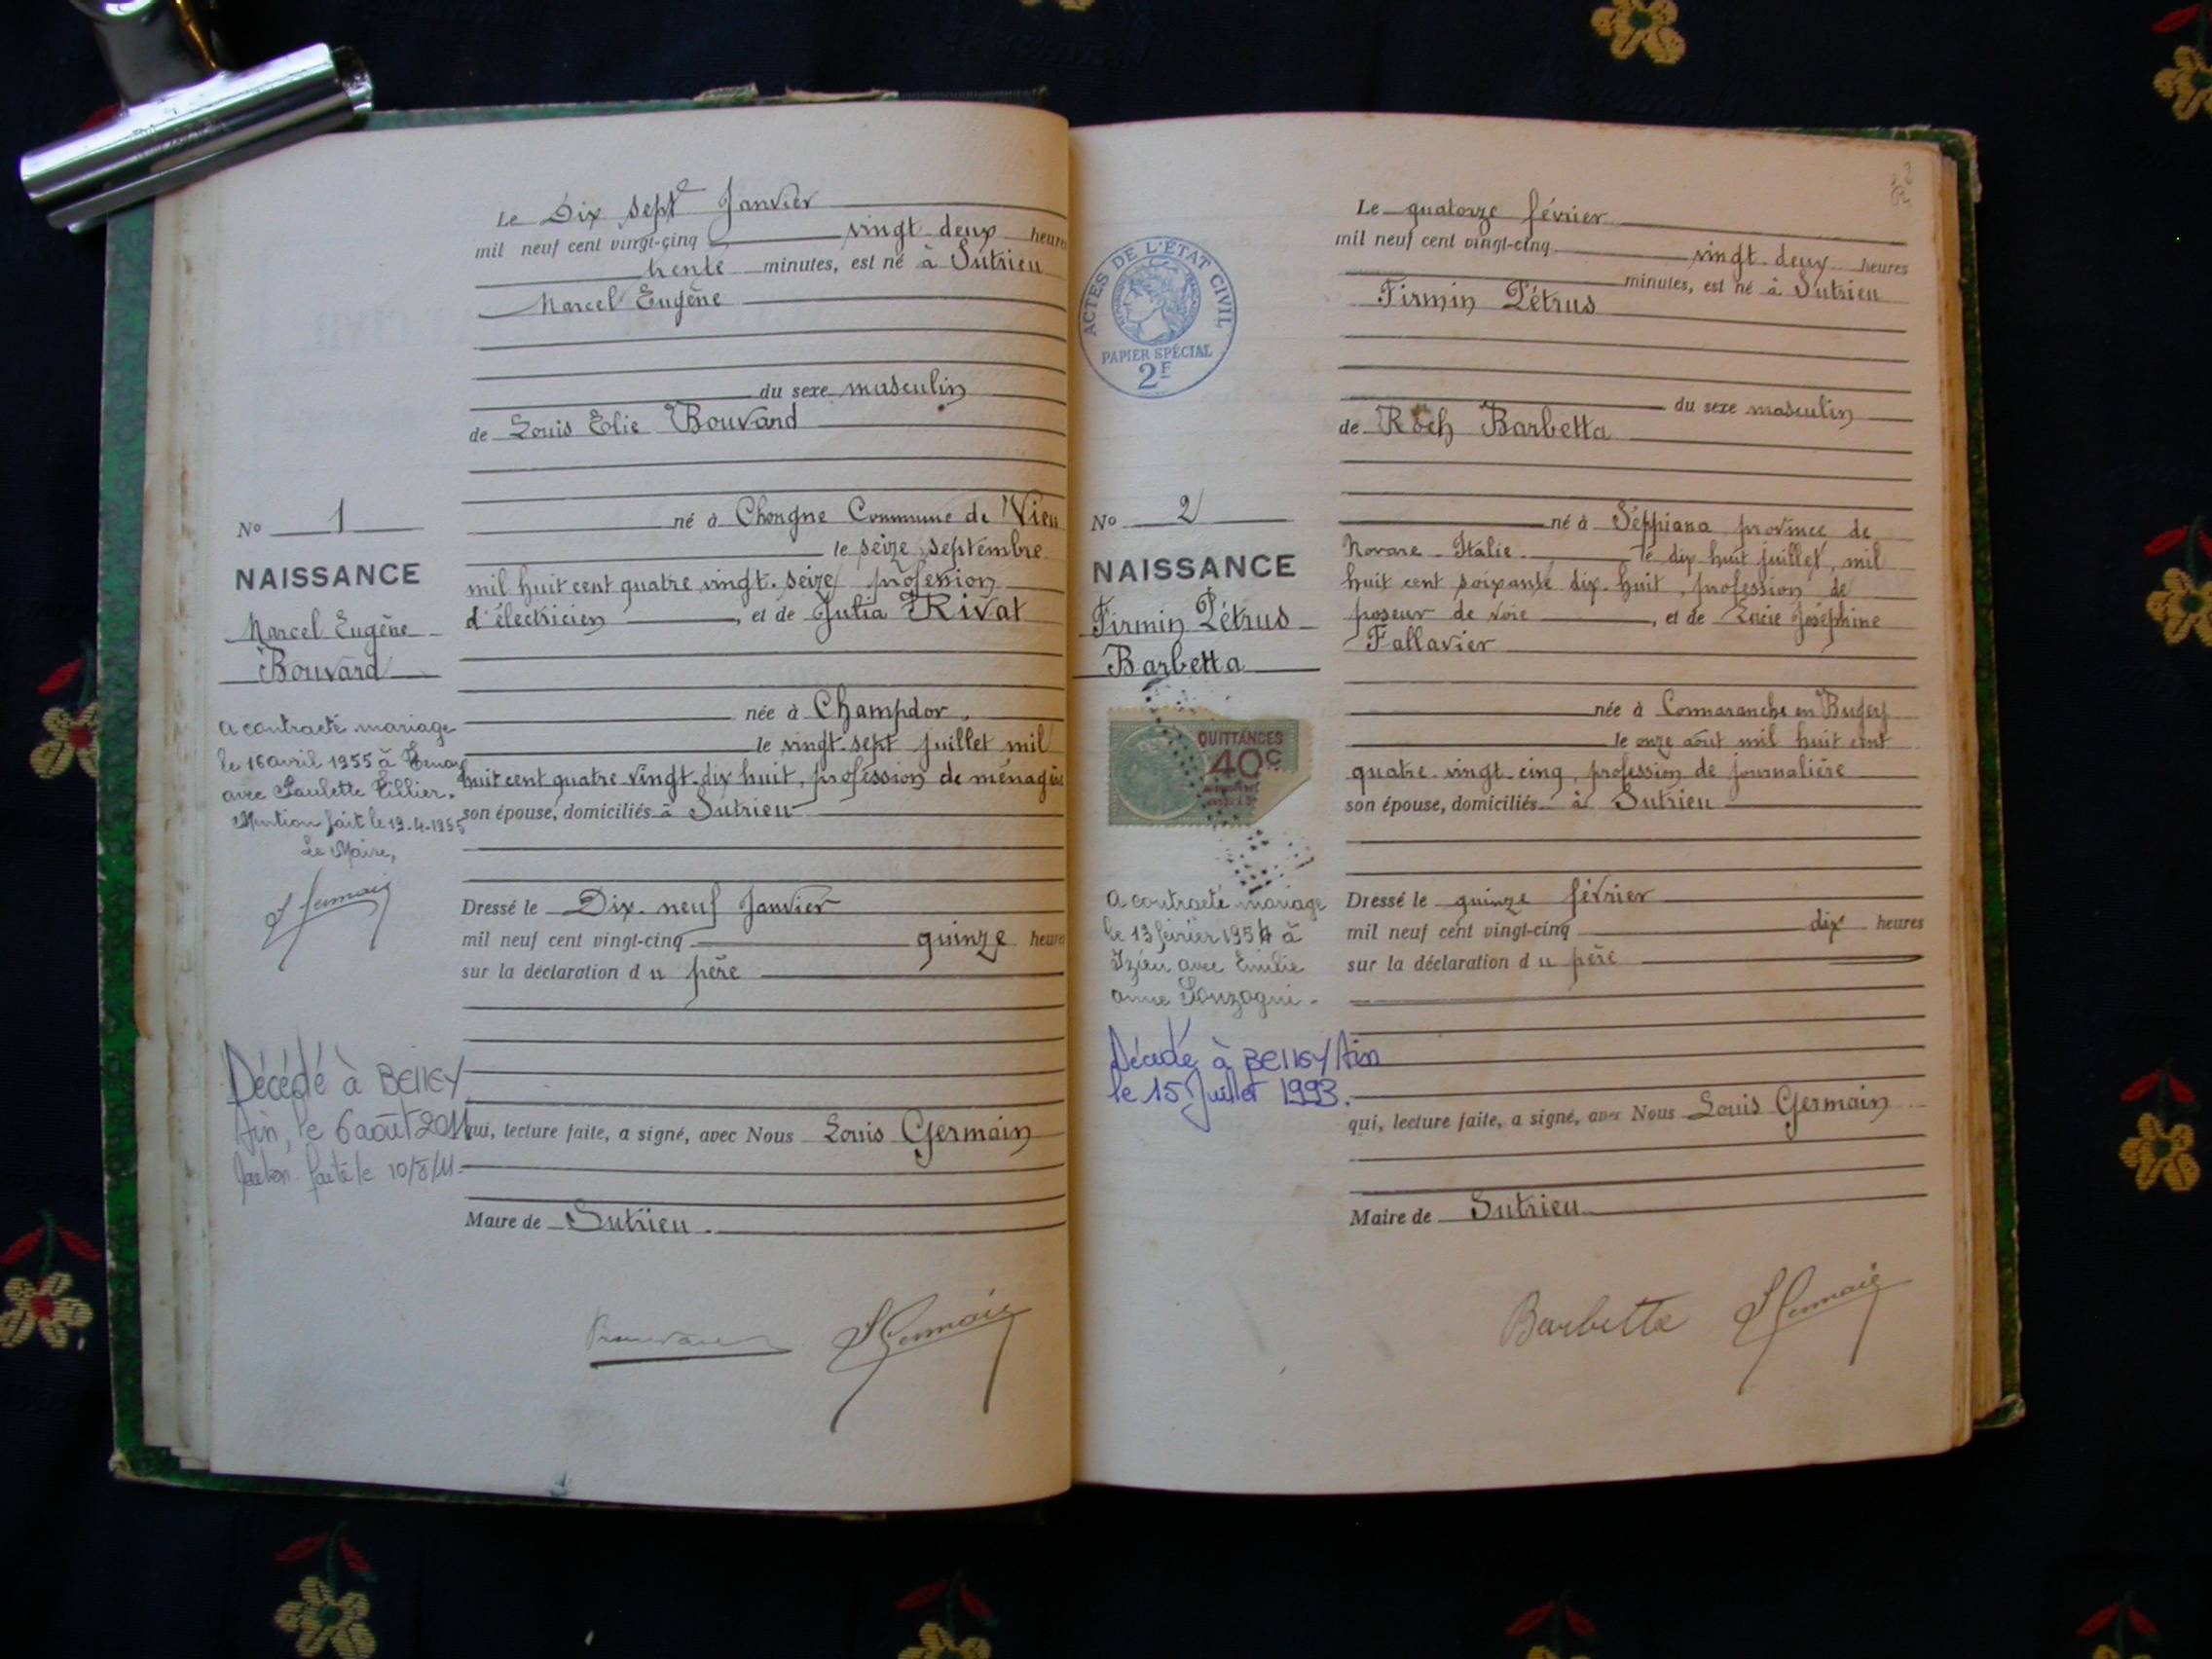 Le Dix sept Janvier
mil neuf cent vingt-cinq vingt deux heures
trente minutes, est né à Sutrieu
Marcel Eugène
du sexe masculin
de Louis Elie Bouvard
né à Chongne Commune de Vieu
le seize septembre
mil huit cent quatre vingt. seize profession
d'électricien, et de Julia Rivat
née à Champdor.
le vingt-sept juillet mil
huit cent quatre vingt-dix huit, profession de ménagère
son épouse, domiciliés à Sutrieu
Dressé le Dix-neuf Janvier
mil neuf cent vingt-cinq quinze heures
sur la déclaration du père
qui, lecture faite, a signé, avec Nous Louis Germain
Maire de Sutrieu.
No 1
NAISSANCE
Marcel Eugène
Bouvard
a contracté mariage
le 16 avril 1955 à Tenay
avec Paulette Tillier.
Mention fait le 19-4-1955
Le Maire,
L Germain
Décédé à BELLEY
Ain, le 6 août 2011
faite le 10/8/11
L Germain
ACTES DE L'ÉTAT CIVIL
PAPIER SPÉCIAL
2F
No 2
NAISSANCE
Firmin Pétrus
Barbetta
QUITTANCES
40c
a contracté mariage
le 13 février 1954 à
Izieu avec Emilie
anne
Décédé à BELLEY Ain
le 15 Juillet 1993.
Le quatorze février
mil neuf cent vingt-cinq vingt-deux heures
minutes, est né à Sutrieu
Firmin Pétrus
du sexe masculin
de Roch Barbetta
né à Séppiana province de
Novare - Italie. le dix huit juillet, mil
huit cent soixante dix-huit, profession de
poseur de voie, et de Lucie Joséphine
Fallavier
née à Cormaranche en Bugey
le onze août mil huit cent
quatre-vingt-cinq, profession de journalière
son épouse, domiciliés à Sutrieu
Dressé le quinze février
mil neuf cent vingt-cinq dix heures
sur la déclaration du père
qui, lecture faite, a signé, avec Nous Louis Germain
Maire de Sutrieu
Barbetta L Germain